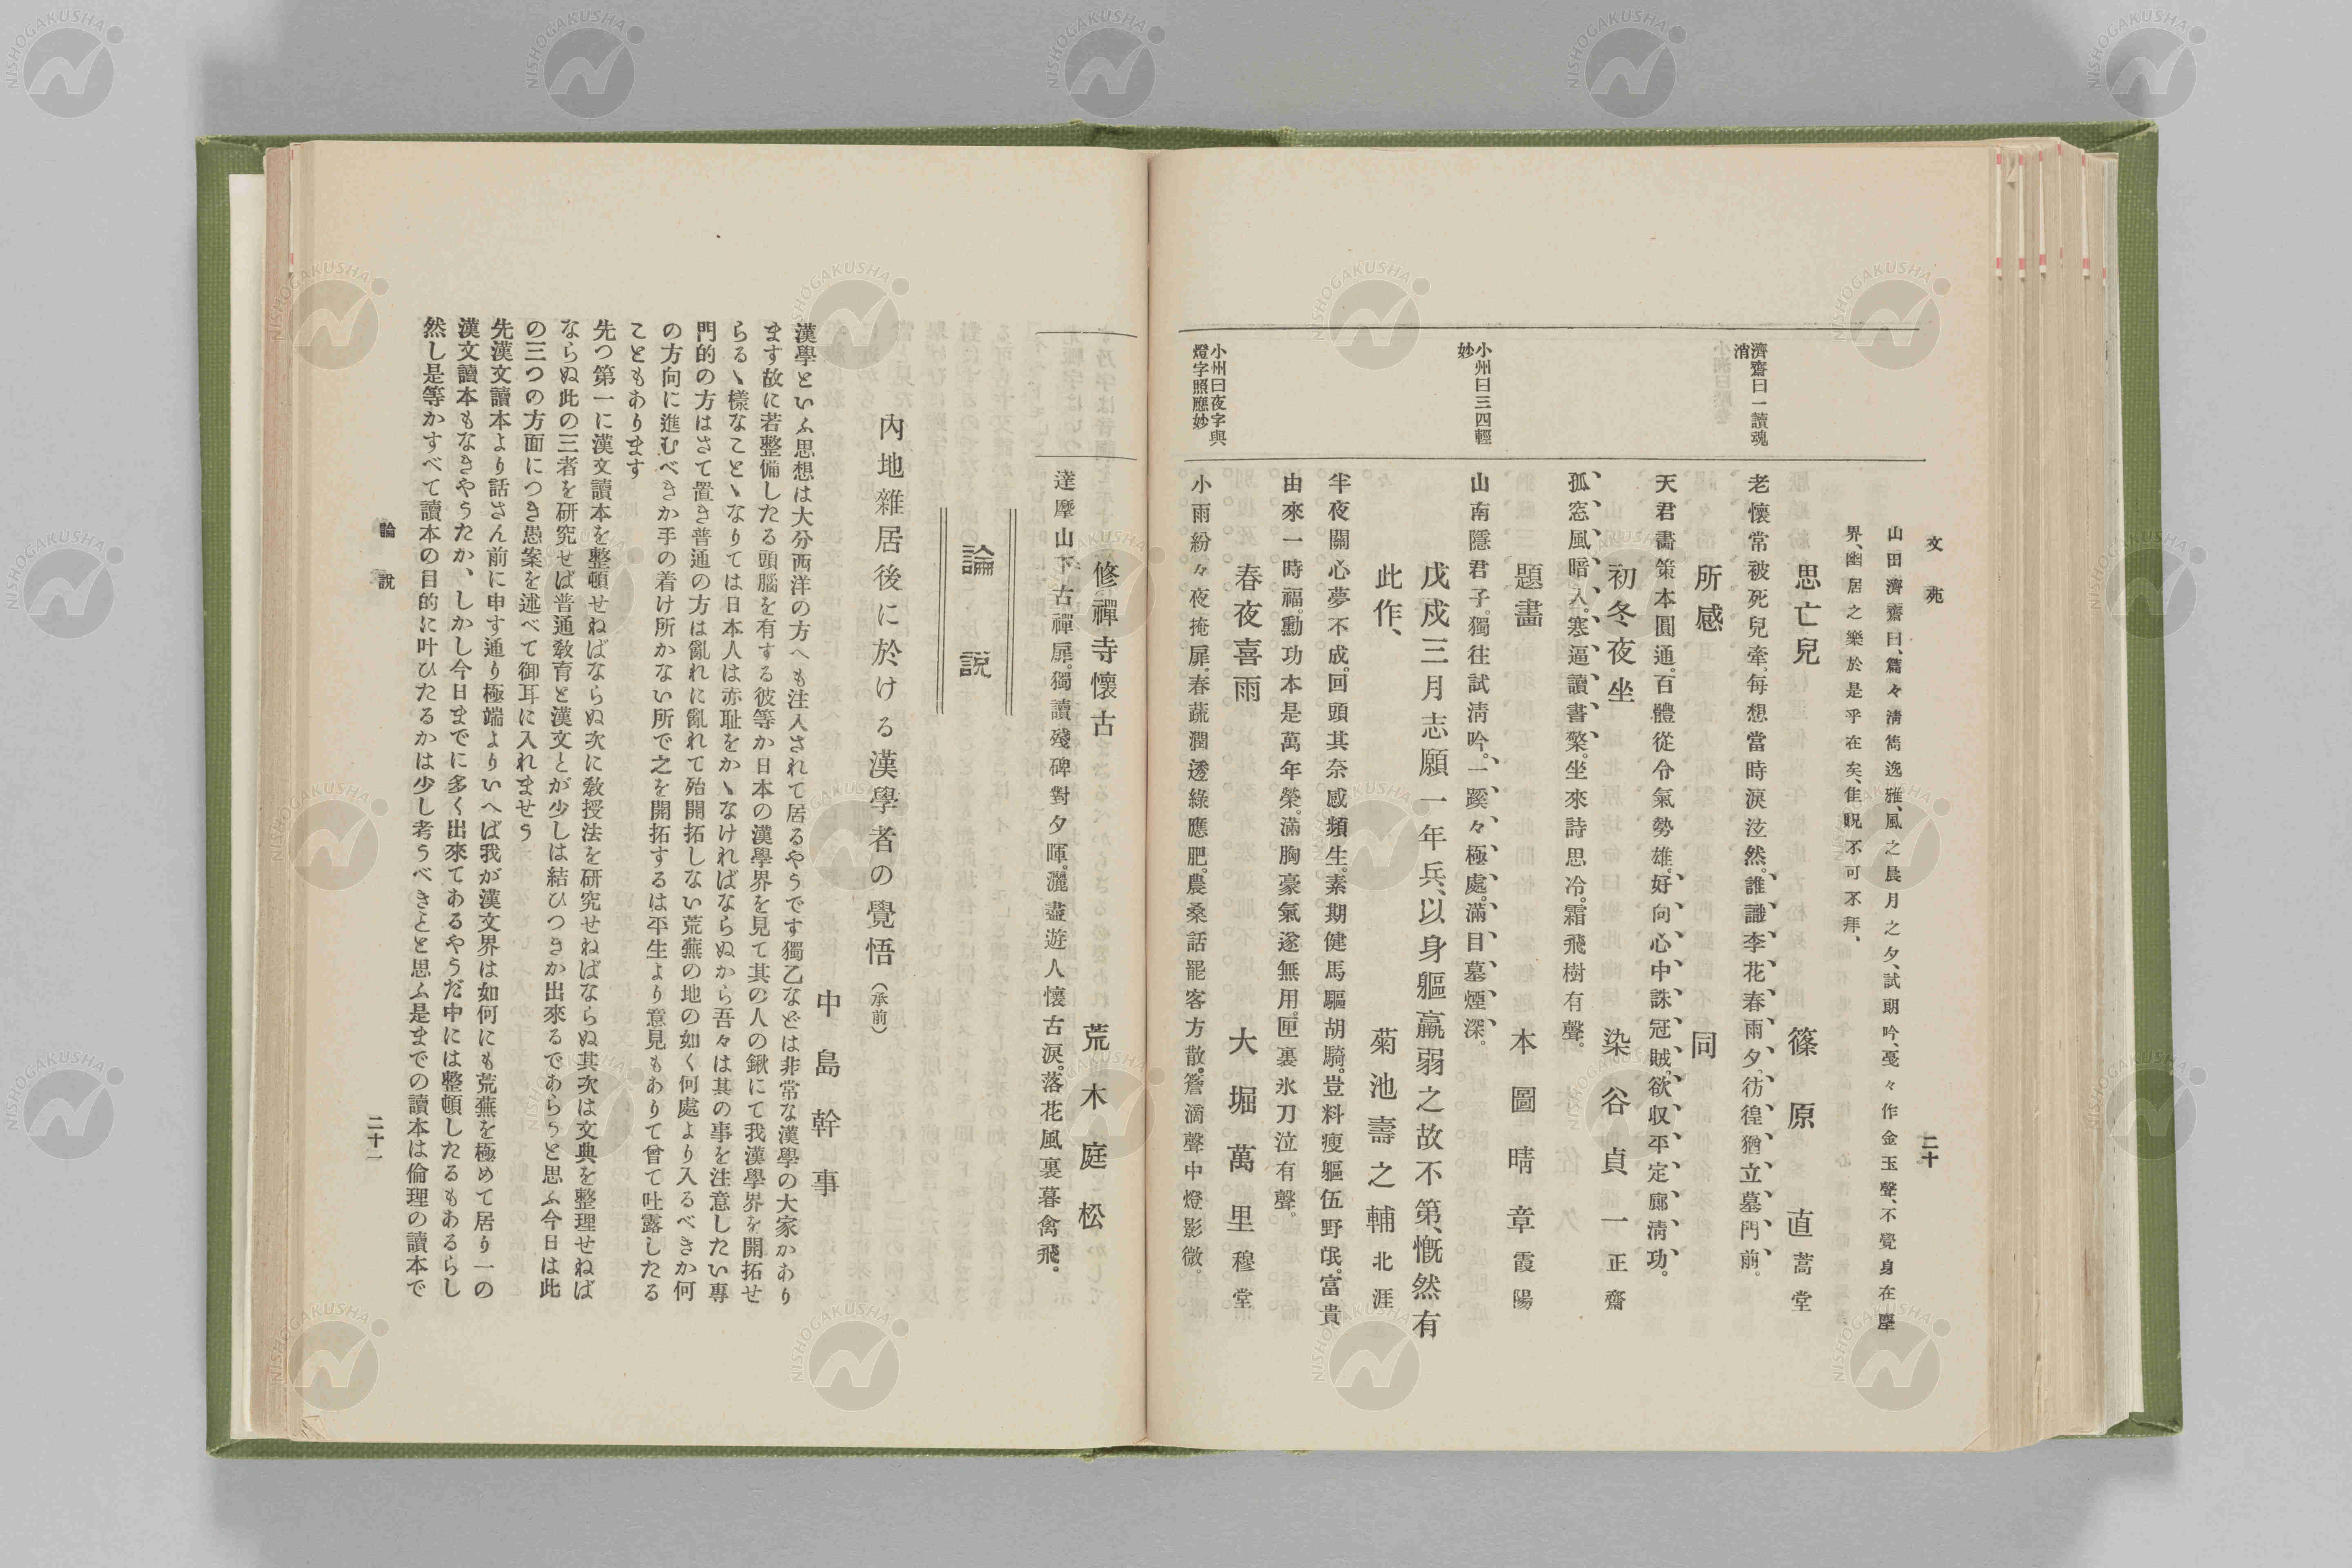 文苑
二十
山田濟齋曰、篇々淸雋逸雅、風之晨月之夕、試朗吟、戞々作金玉聲、不覺身在塵
界、幽居之樂於是乎在矣、隹貺不可不拜、
思亡兒
篠原直蒿堂
濟齋曰一讀魂
消
老懷常被死兒牽。每想當時淚泫然。誰識李花春雨夕。彷徨猶立墓門前。
所感
同
天君畵策本圓通。百體從令氣勢雄。好向心中誅冠賊。欲収平定廓淸功。
初冬夜坐
染谷貞一正齋
孤窓風暗入。寒逼讀書檠。坐來詩思冷。霜飛樹有聲。
題畵
本圖晴章霞陽
小州曰三四輕
妙
山南隱君子。獨往試淸吟。一蹊々極處。滿目墓煙深。
戊戍三月志願一年兵、以身軀羸弱之故不第、慨然有
此作、
菊池壽之輔北涯
半夜關心夢不成。回頭其奈感頻生。素期健馬驅胡騎。豈料瘦軀伍野氓。富貴
由來一時福。勳功本是萬年榮。滿胸豪氣遂無用。匣裏氷刀泣有聲。
春夜喜雨
大堀萬里穆堂
小州曰夜字與
燈字照應妙
小雨紛々夜掩扉。春蔬潤透綠應肥。農桑話罷客方散。簷滴聲中燈影微。
修禪寺懷古
荒木庭松
達摩山下古禪扉。獨讀殘碑對夕暉。灑盡遊人懷古淚。落花風裏暮禽飛。
論說
內地雜居後に於ける漢學者の覺悟(承前)
中島幹事
漢學といふ思想は大分西洋の方へも注入されて居るやうです獨乙などは非常な漢學の大家かあり
ます故に若整備したる頭腦を有する彼等か日本の漢學界を見て其の人の鍬にて我漢學界を開拓せ
らるゝ樣なことゝなりては日本人は赤耻をかゝなければならぬから吾々は其の事を注意したい專
門的の方はさて置き普通の方は亂れに亂れて殆開拓しない荒蕪の地の如く何處より入るべきか何
の方向に進むべきか手の着け所かない所で之を開拓するは平生より意見もありて曾て吐露したる
こともあります
先つ第一に漢文讀本を整頓せねばならぬ次に敎授法を研究せねばならぬ其次は文典を整理せねば
ならぬ此の三者を研究せば普通敎育と漢文とが少しは結ひつきか出來るであらうと思ふ今日は此
の三つの方面につき愚案を述べて御耳に入れませう
先漢文讀本より話さん前に申す通り極端よりいへば我が漢文界は如何にも荒蕪を極めて居り一の
漢文讀本もなきやうたか、しかし今日までに多く出來てあるやうだ中には整頓したるもあるらし
然し是等かすべて讀本の目的に叶ひたるかは少し考うべきとと思ふ是までの讀本は倫理の讀本で
論說
二十一